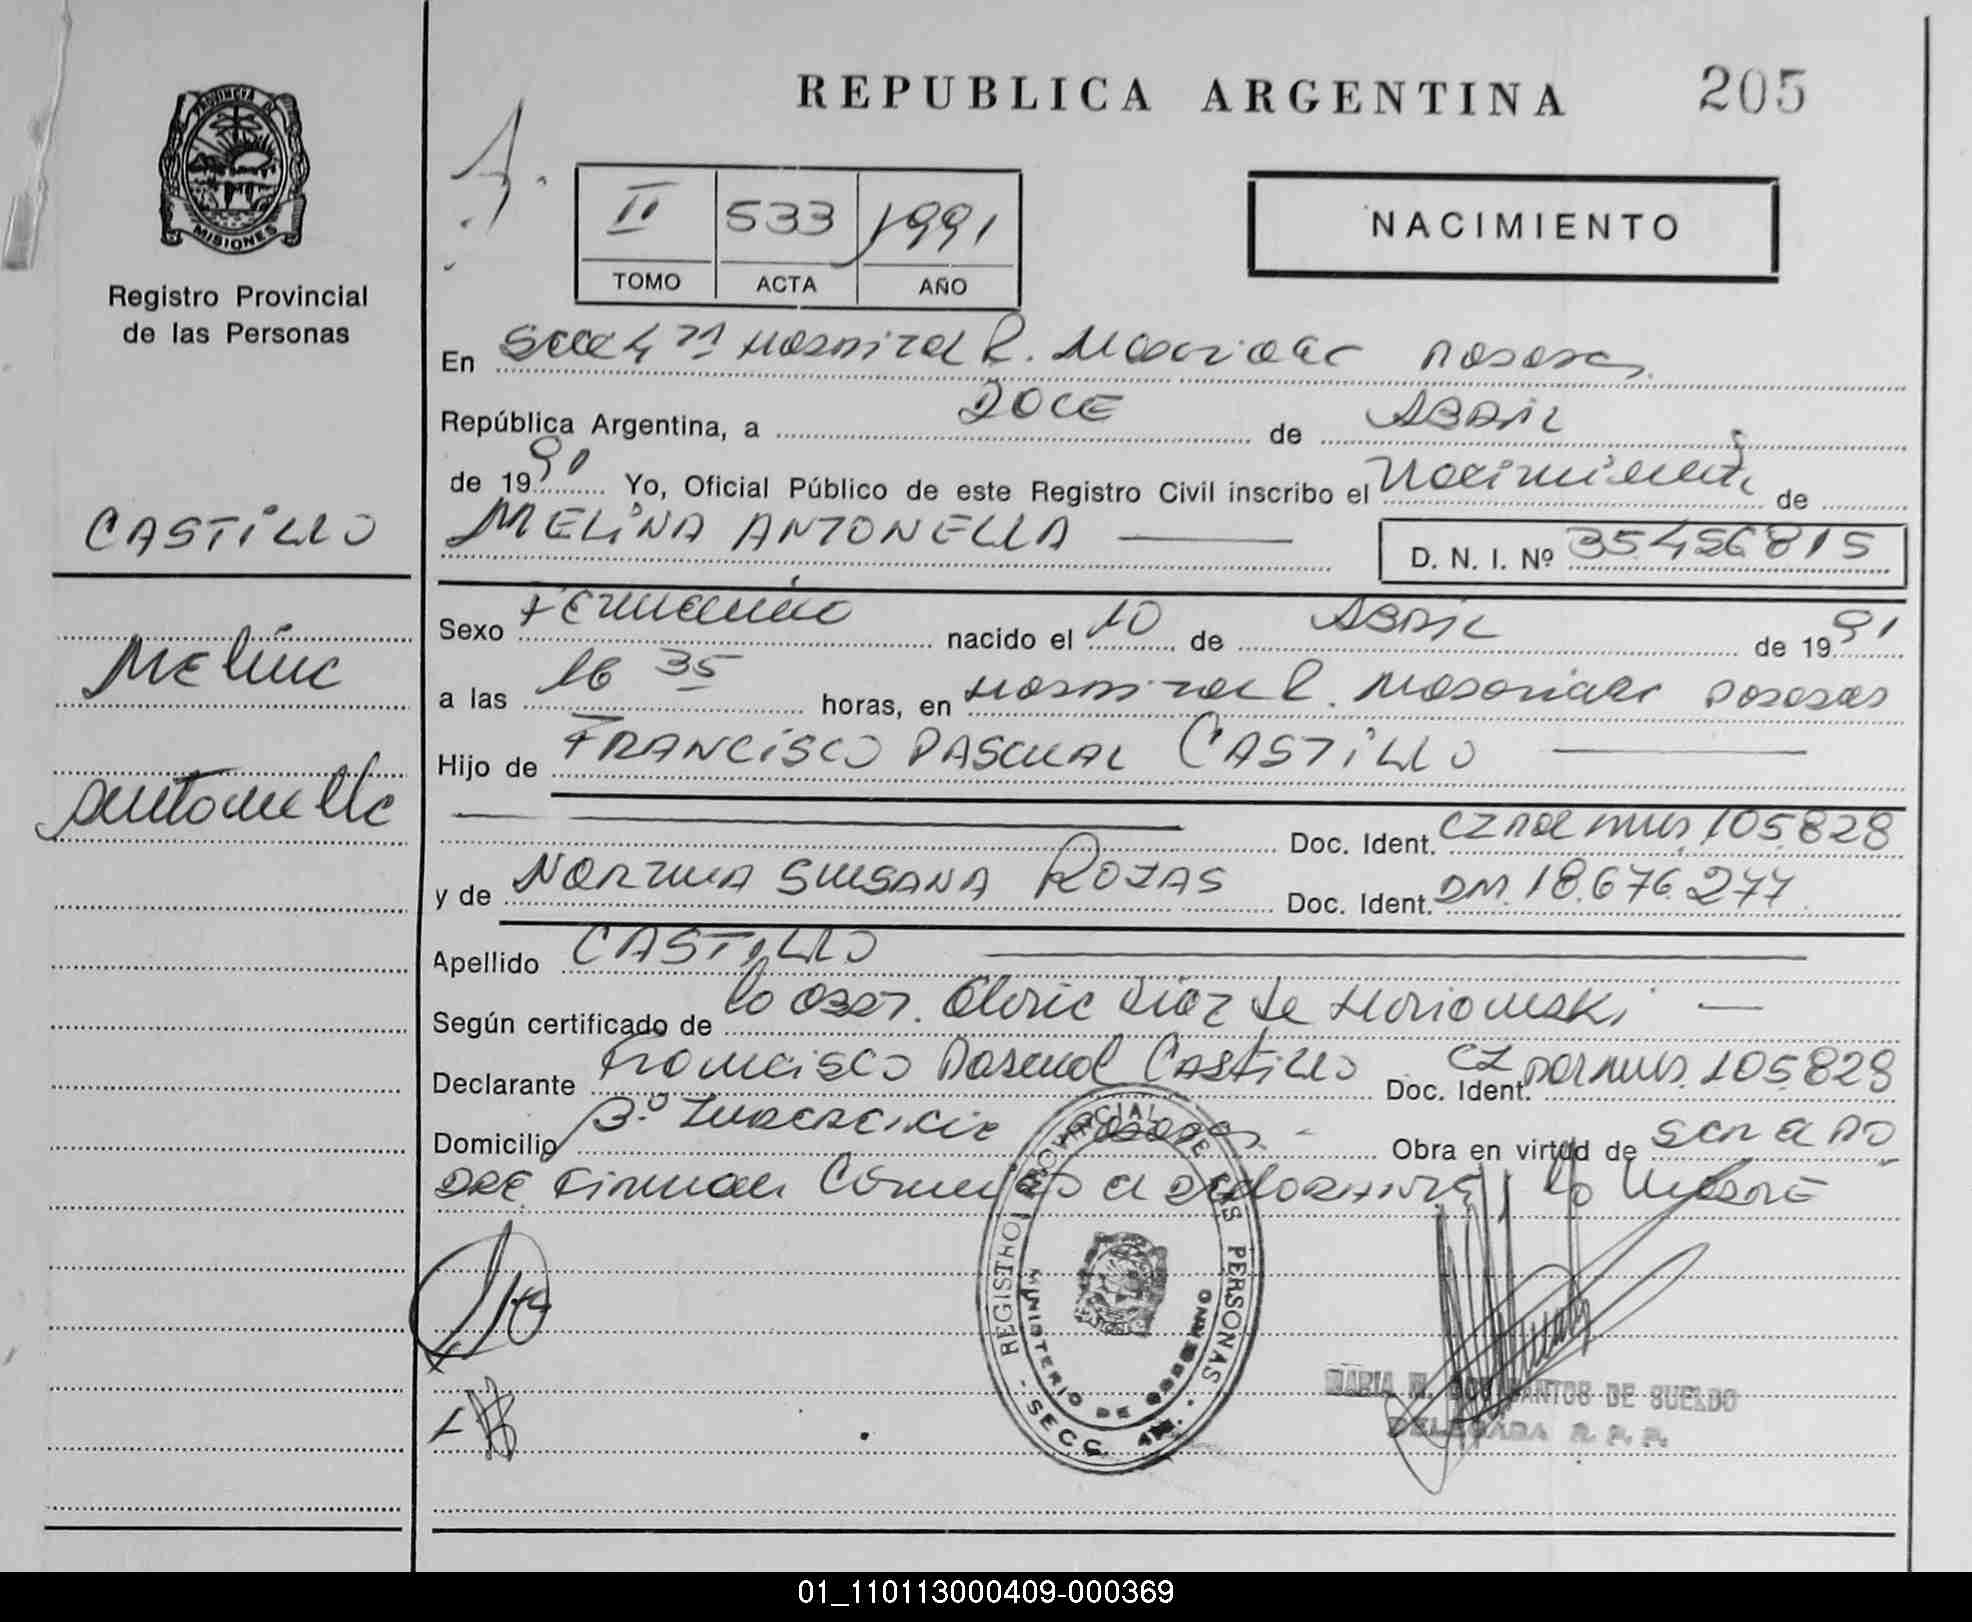 REPUBLICA ARGENTINA 205
PROVINCIA DE
MISIONES
Registro Provincial
de las Personas
II 533 1991
TOMO ACTA AÑO
NACIMIENTO
En Secc 4ta Hospital R. Madariaga Posadas
República Argentina, a DOCE de ABRIL
de 1991 Yo, Oficial Público de este Registro Civil inscribo el Nacimiento de
MELINA ANTONELLA D. N. I. Nº 35456815
CASTILLO
Melina
Antonella
Sexo Femenino nacido el 10 de ABRIL de 1991
a las 16 35 horas, en Hospital R. Madariaga Posadas
Hijo de FRANCISCO PASCUAL CASTILLO
Doc. Ident. CI 105.828
y de NORMA SUSANA ROJAS Doc. Ident. DNI. 18.676.277
Apellido CASTILLO
Según certificado de la Obst. Gloria Diaz de
Declarante Francisco Pascual Castillo Doc. Ident. CI 105.828
Domicilio Posadas Obra en virtud de ser el PADRE
Firman la MADRE
REGISTRO PROVINCIAL DE LAS PERSONAS
MINISTERIO DE GOBIERNO
- SECC. 4ta. -
MARIA M. DOS SANTOS DE SUELDO
DELEGADA R. P. P.
01_110113000409-000369